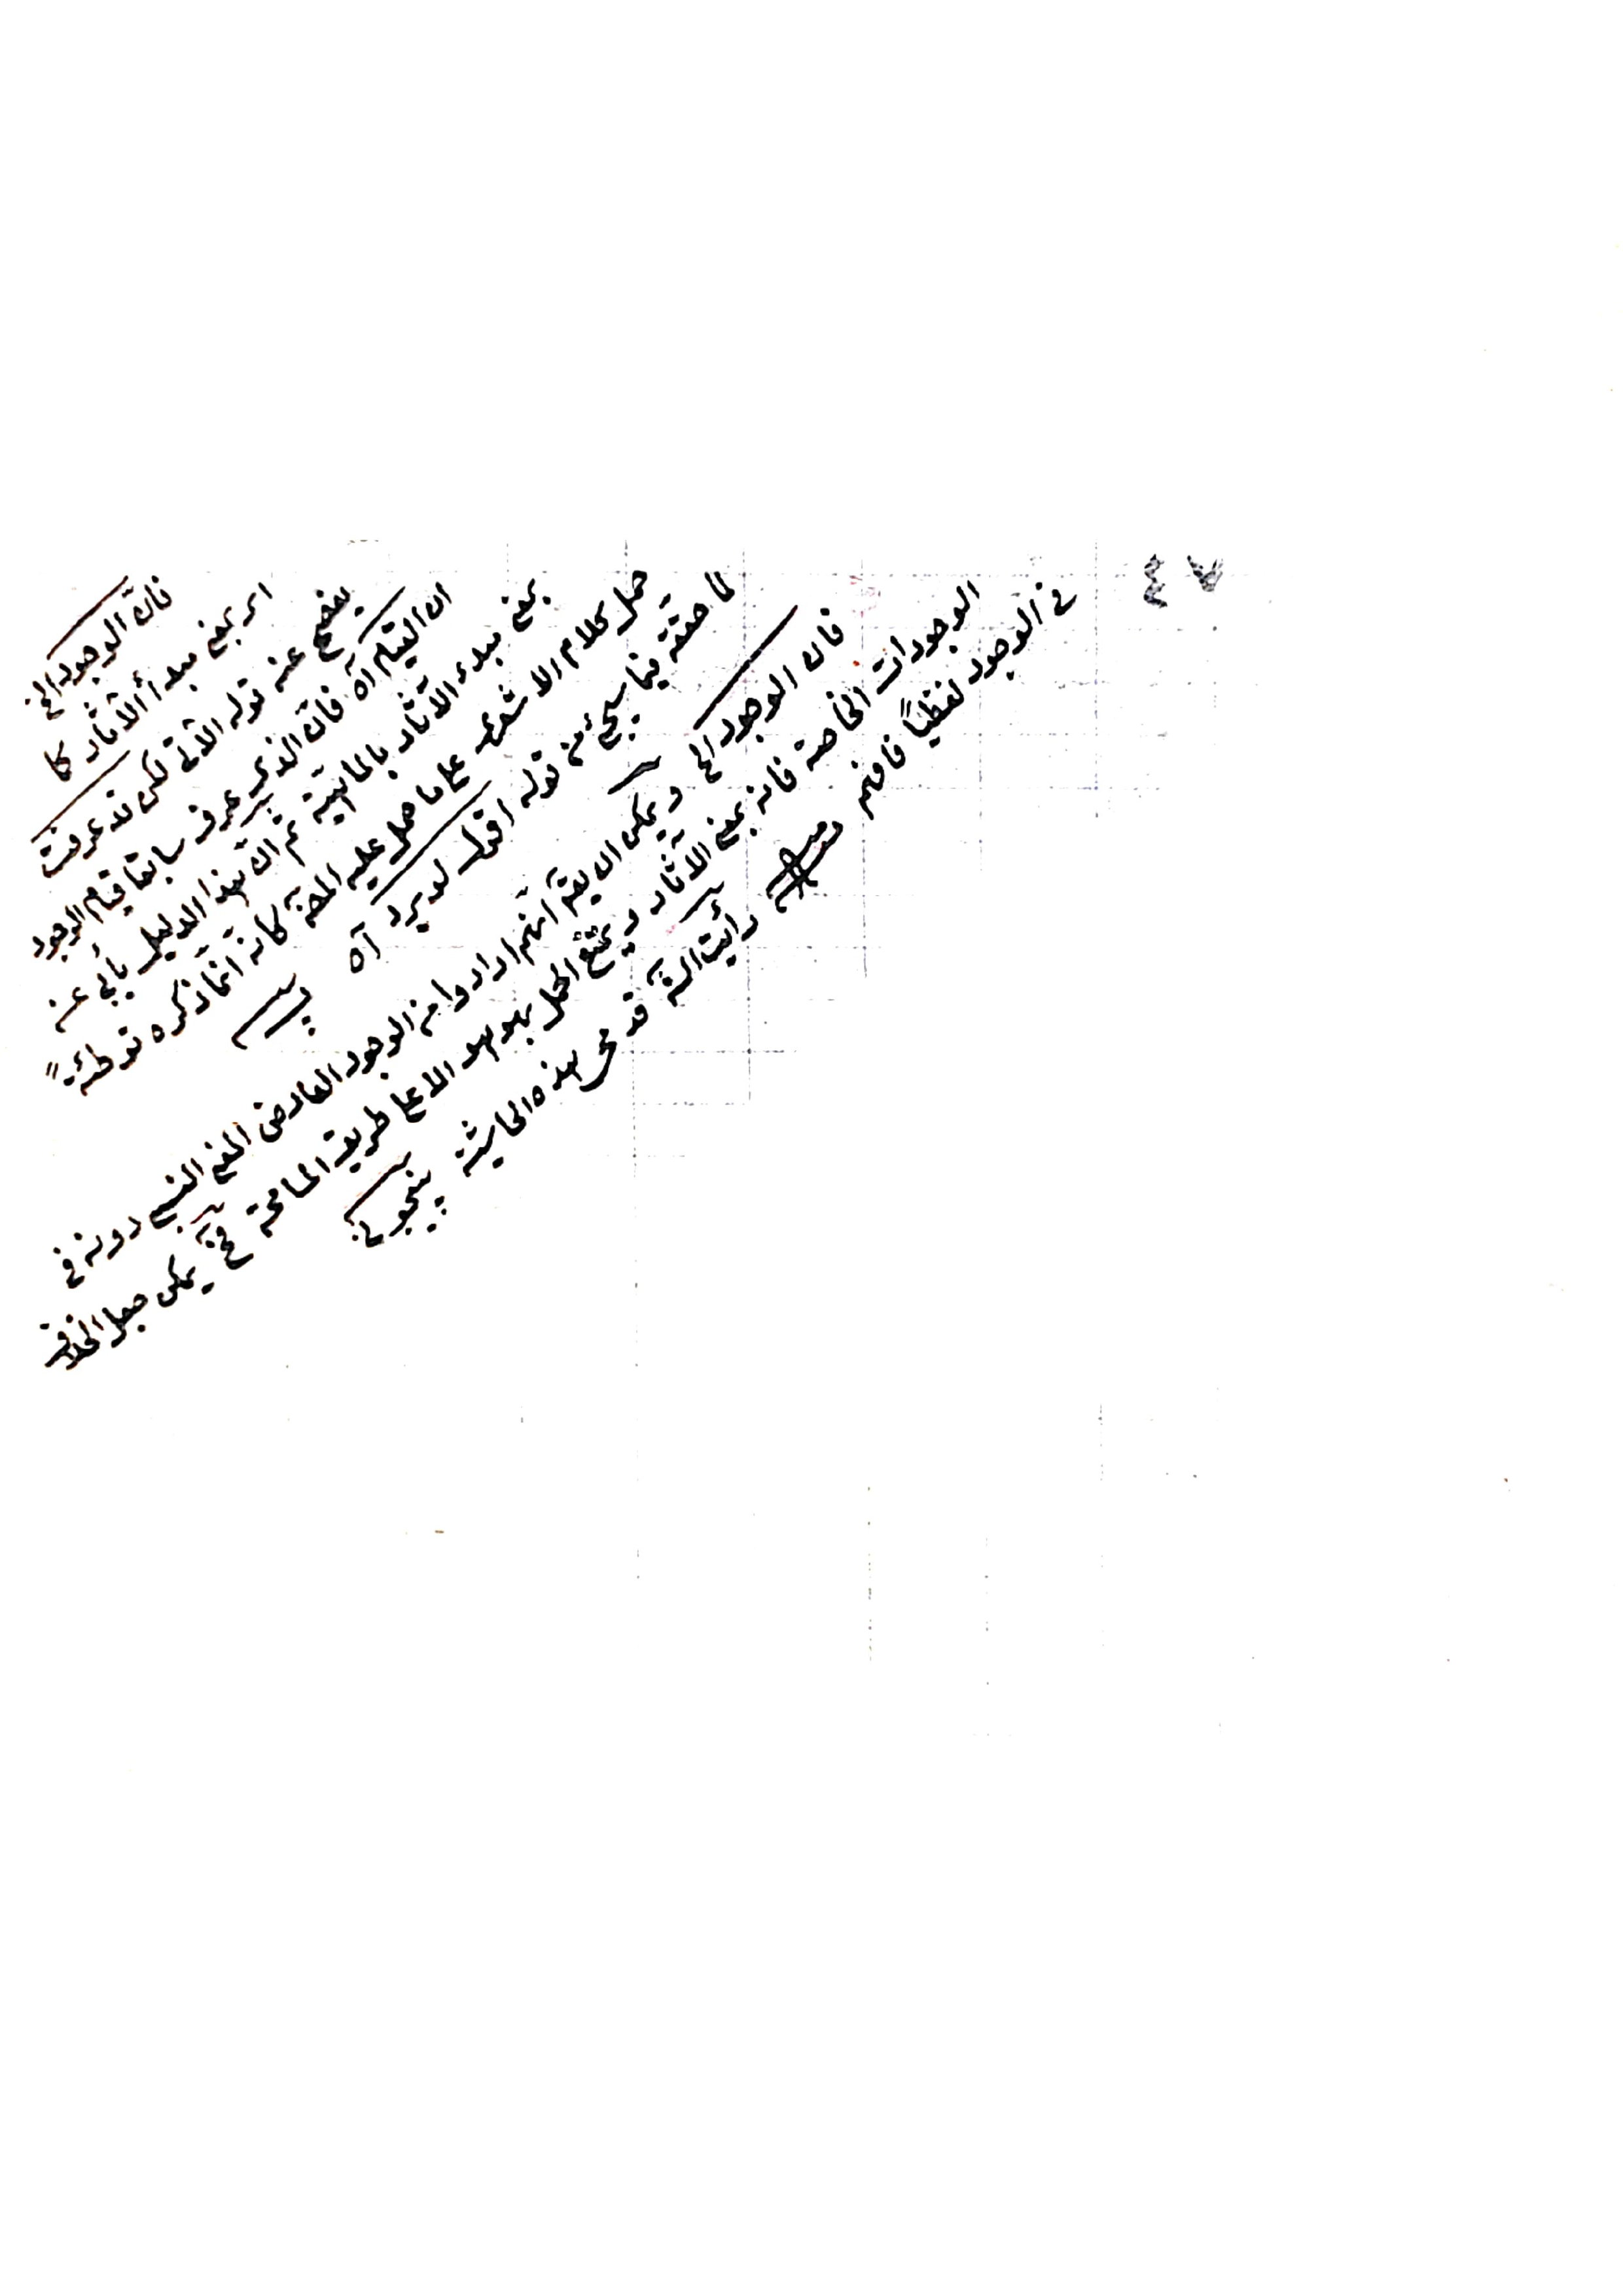 ٤٧
فانّ الوجود الخ
اى بمعنى مبدأ الآثار كما
يفصح عنه قوله الآتى لكن قد عرفت
ان القيام آه فانّ الذى عرف سابقا قيام الوجود
بمعنى مبدء الآثار بالماهية ثم انّ هذا الدليل يأبى عن
حمل كلام الاشعرى على ما حمل عليه المص كانه انّما ذكره توطئة
لما حققه فيما يجئ من قوله اقول لو يرد آه
فان الوجود الخ و على ان يقم انهم ارادوا من الوجود العارض المعنى النسبى دون
الوجودات الخاصة فانه بمعنى الآثار و يمتنع الحمل هو هو الا على طريق المسامحة على جعل الخلاف
فى الوجود لفظيا فافهم
رأيت انّه قد هذه الحاشية
ينجوينى